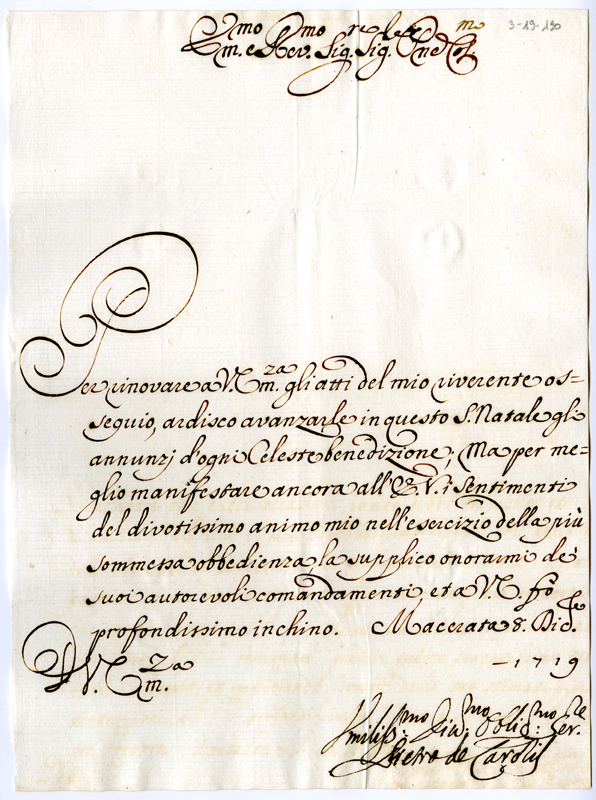 3-19-130
Em.mo e Rev.mo Sig.re Sig.re
Per rinovare a V. Em.za gli atti del mio riverente os=
sequio, ardisco avanzarle in questo S. Natale gli
annunzj d'ogni Celeste benedizione; Ma per me=
glio manifestare ancora all'E. V. i sentimenti
del divotissimo animo mio nell'esercizio della più
sommessa obbedienza, la supplico onorarmi de'
suoi autorevoli comandamenti, et a V. E. fo
profondissimo inchino. Macerata 8. Dic.re
– 1719
D V. Em.za
Umiliss.mo Div.mo Oblig.mo Ser.re
Pietro de Carolis